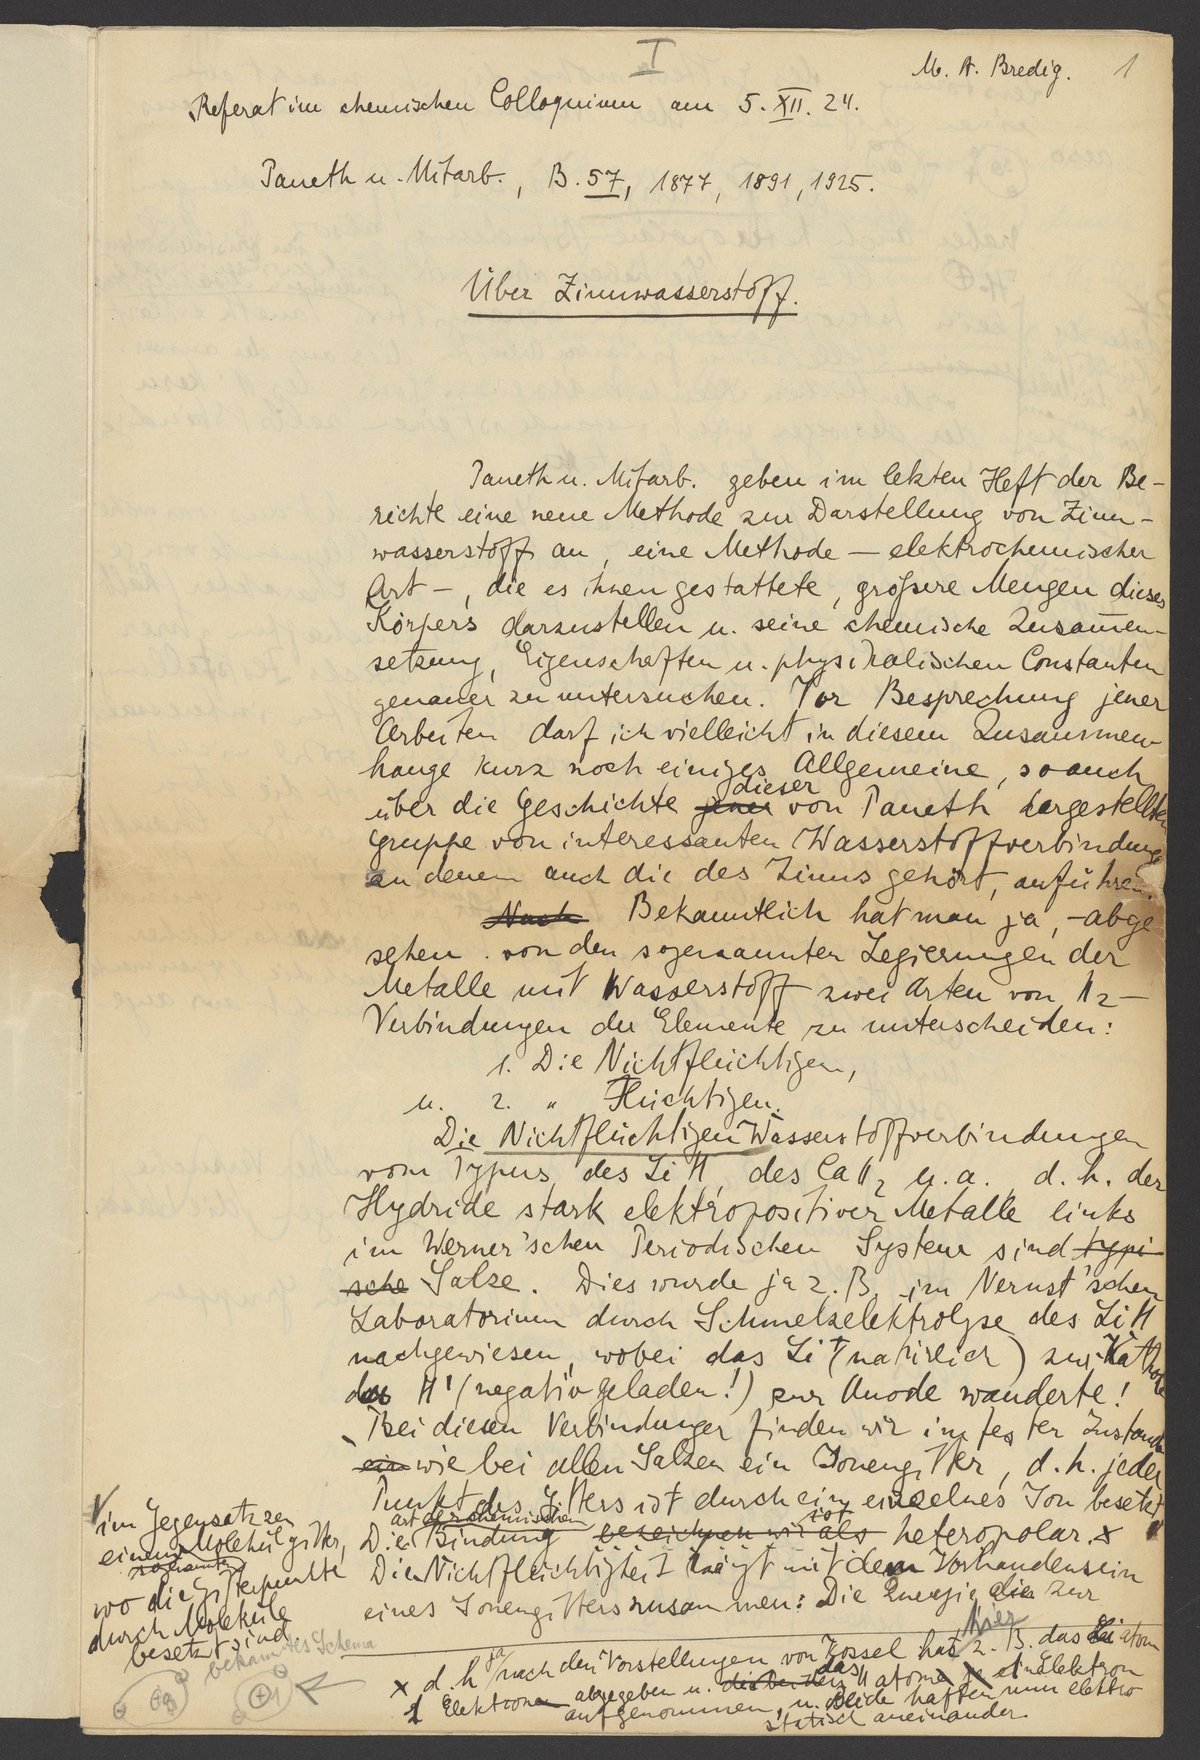 I
M. A. Bredig. 1
Referat im chemischen Colloquium am 5. XII. 24.
Paneth u. Mitarb., B. 57, 1877, 1891, 1925.
Über Zinnwasserstoff.
Paneth u. Mitarb. geben im letzten Heft der Be-
richte eine neue Methode zur Darstellung von Zinn-
wasserstoff an, eine Methode — elektrochemischer
Art —, die es ihnen gestattete, größere Mengen dieses
Körpers darzustellen u. seine chemische Zusam̅en-
setzung, Eigenschaften u. physikalischen Constanten
genauer zu untersuchen. Vor Besprechung jener
Arbeiten darf ich vielleicht in diesem Zusammen-
hange kurz noch einiges Allgemeine, so auch
dieser
über die Geschichte jener von Paneth hergestellten
Gruppe von interessanten Wasserstoffverbindungen
zu denen auch die des Zinns gehört, anführen.
Nach Bekanntlich hat man ja, - abge
sehen von den sogenannten Legierungen der
Metalle mit Wasserstoff zwei Arten von H2-
Verbindungen der Elemente zu unterscheiden:
1. Die Nichtflüchtigen,
u. 2. " Flüchtigen.
Die Nichtflüchtigen Wasserstoffverbindungen
vom Typus des LiH, des CaH2 u. a. d. h. der
Hydride stark elektropositiver Metalle links
im Werner'schen Periodischen System sind typi-
sche Salze. Dies wurde ja z. B. im Nernst'schen
Laboratorium durch Schmelzelektrolyse des LiH
nachgewiesen, wobei das Li+ (natürlich) zur Kathode
das H' (negativ geladen!) zur Anode wanderte!
Bei diesen Verbindungen finden wir im festen Zustand
ein wie bei allen Salzen ein Ionengitter, d. h. jeder
Punkt des Gitters ist durch ein einzelnes Ion besetzt
art der chemischen ist
Die Bindung bezeichnen wir als heteropolar. x
Die Nichtflüchtigkeit hängt mit dem Vorhandensein
eines Ionengitters zusammen: Die Energie die zur
im Gegensatz zu
einem Molekülgitter,
sogenannten
wo die Gitterpunkte
durch Moleküle
besetzt sind.
bekanntes Schema
hier
x d. h. ja nach den Vorstellungen von Kossel hat z. B. das Li atom
das
1 Elektronen abgegeben u. H atom ein Elektron
aufgenommen, u. Beide haften nun elektro
statisch aneinander.